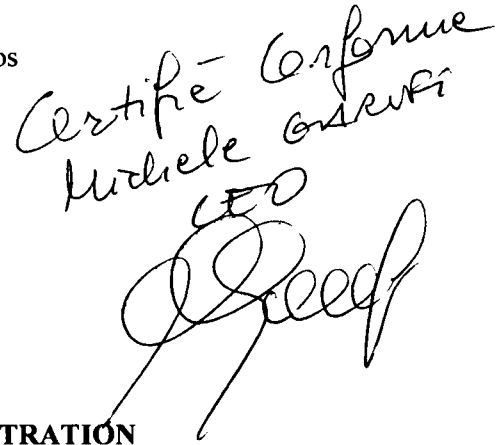 os
Certifié Conforme
Michele GARUFI
CEO
TRATION